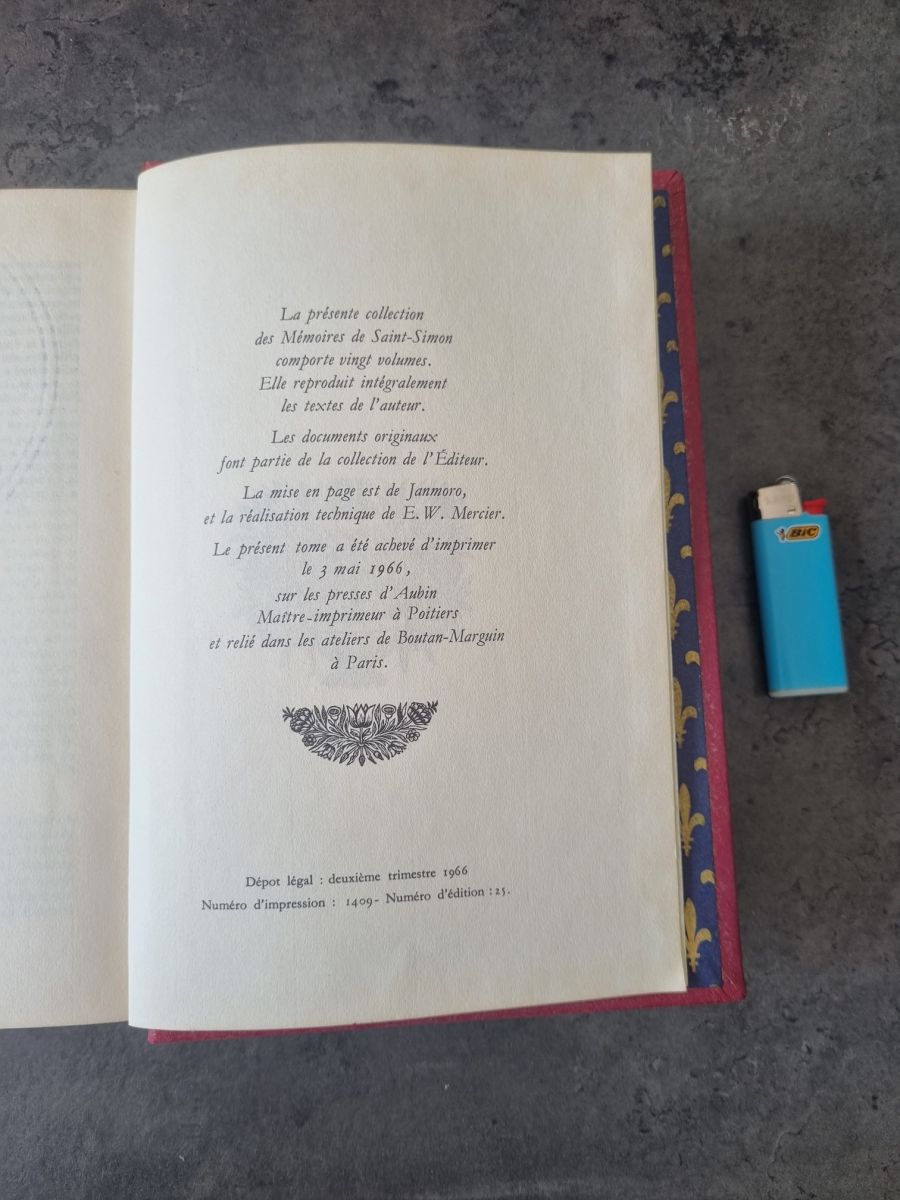 La présente collection
des Mémoires de Saint-Simon
comporte vingt volumes.
Elle reproduit intégralement
les textes de l'auteur.
Les documents originaux
font partie de la collection de l'Éditeur.
La mise en page est de Janmoro,
et la réalisation technique de E. W. Mercier.
Le présent tome a été achevé d'imprimer
le 3 mai 1966,
sur les presses d'Aubin
Maître-imprimeur à Poitiers
et relié dans les ateliers de Boutan-Marguin
à Paris.
Dépot légal : deuxième trimestre 1966
Numéro d'impression : 1409- Numéro d'édition : 25.
BIC